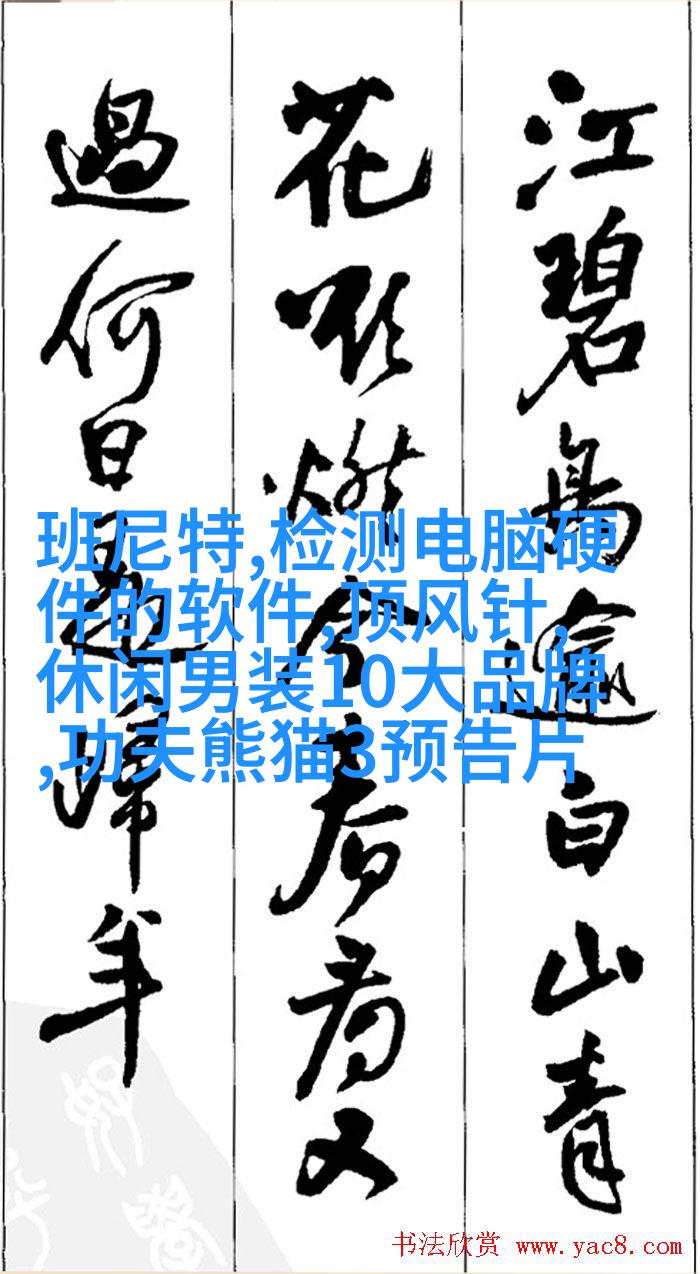 江碧鳥逾白山青
花欲燃今春看又
過何日是歸年
班尼特,检测电脑硬
件的软件,顶风针,
休闲男装10大品牌
,功夫熊猫3预告片
书法欣赏 www.yac8.com